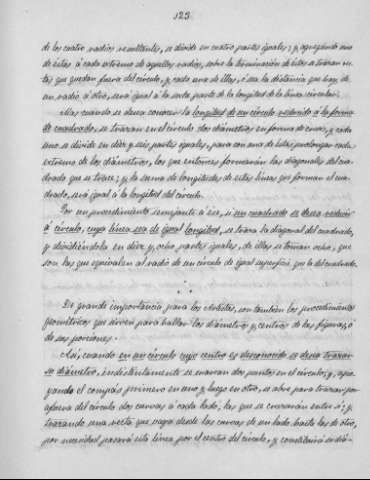 125.
de los cuatro radios resultantes, se divide en cuatro partes iguales; y agregando una
de éstas á cada extremo de aquellos radios, sobre la terminación de ellos se trazan rec-
tas que quedan fuera del círculo, y cada una de ellas, ó sea la distancia que hay de
un radio á otro, será igual á la sexta parte de la longitud de la línea circular.
Mas cuando se desea conocer la longitud de un círculo reducido á la forma
de cuadrado, se trazan en el círculo dos diámetros en forma de cruz, y cada
uno se divide en diez y seis partes iguales, para con una de éstas prolongar cada
extremo de los diámetros, los que entonces formarán las diagonales del cua-
drado que se busca; y la suma de longitudes de estas líneas que forman el cua-
drado, será igual á la longitud del círculo.
Por un procedimiento semejante á ese, si un cuadrado se desea reducir
á círculo, cuya línea sea de igual longitud, se traza la diagonal del cuadrado,
y dividiéndola en diez y ocho partes iguales, de ellas se toman ocho, que
son las que equivalen al radio de un círculo de igual superficie que la del cuadrado.
De grande importancia para los Artistas, son también los procedimientos
geométricos que sirven para hallar los diámetros y centros de las figuras, ó
de sus porciones.
Así, cuando en un círculo cuyo centro es desconocido se desea trazar
su diámetro, indistintamente se marcan dos puntos en el círculo; y, apo-
yando el compás primero en uno y luego en otro, se abre para trazar por
afuera del círculo dos curvas á cada lado, las que se cruzarán entre sí; y
trazando una recta que vaya desde las curvas de un lado hasta las de otro,
por necesidad pasará esta línea por el centro del círculo, y constituirá su diá-